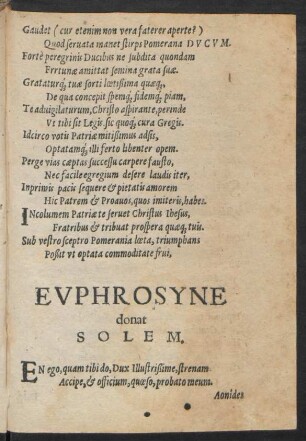 Gaudet (cur etenim non vera faterer aperte?)
Quod servata manet stirps Pomerana DVCVM.
Fortè peregrinis Ducibus ne subdita quondam
Frrtunæ amittat semina grata suæ.
Grataturq́, tuæ sorti lætißima quæq,
De qua concepit spemq́, fidemq́, piam,
Te advigilaturum, Christo aspirante, perinde
Vt tibi sit Legis sic quoq́, cura Gregis.
Idcirco votis Patriæ mitißimus adsis,
Optatamq́, illi ferto libenter opem.
Perge vias cæptas successu carpere fausto,
Nec facile egregium desere laudis iter,
Inprimis pacis sequere & pietatis amorem
Hic Patrem & Proavos, quos imiteris, habes.
INcolumem Patriæ te servet Christus Ihesus,
Fratribus & tribuat prospera quæq, tuis.
Sub vestro sceptro Pomerania læta, triumphans
Poßit vt optata commoditate frui,
EVPHROSYNE
donat
SOLEM.
EN ego, quam tibi do, Dux Illustrißime, strenam
Accipe, & officium, quæso, probato meum.
Aonides